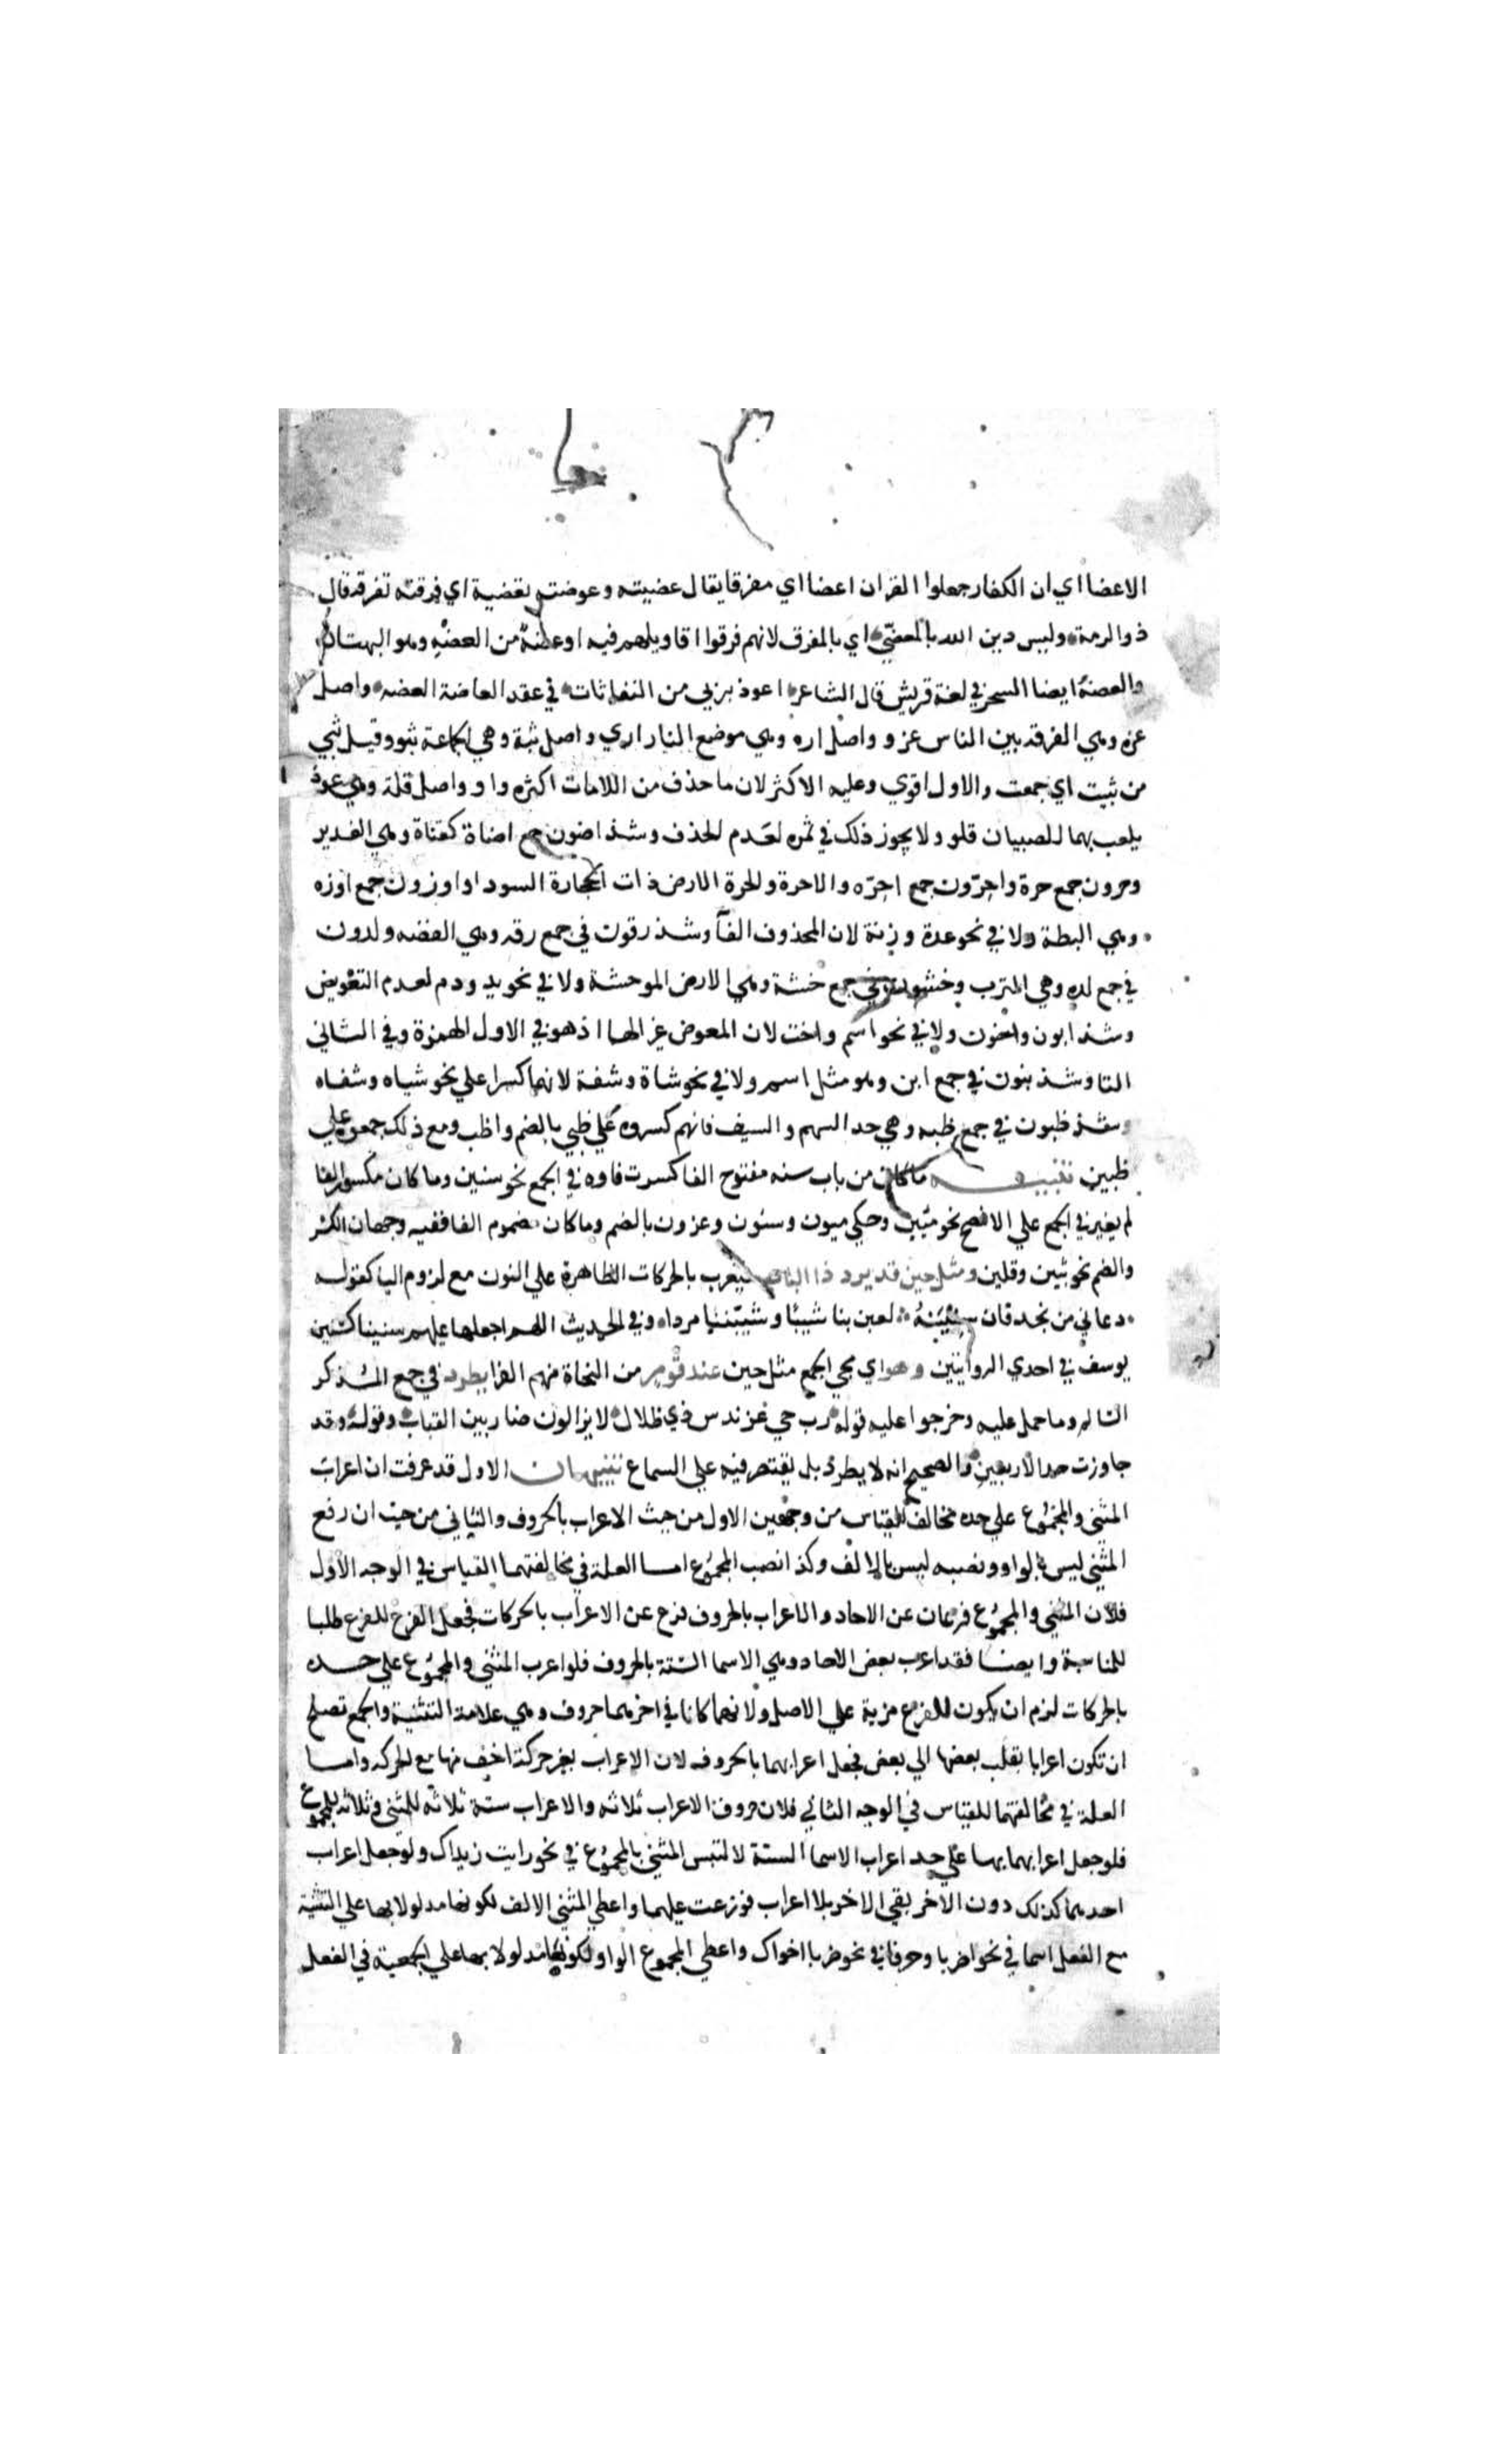 الاعضا اي ان الكفار جعلوا القران اعضا اي مفرقا يقال عضيته وعوضته تعضية اي فرقته تفرقة قال
ذو الرمة وليس دين الله بالمعضي اي بالمفرق لانهم فرقوا اقاويلهم فيه او عضه من العضه وهو البهتان
والعضه ايضا السحر في لغة قريش قال الشاعر اعوذ بربي من النفاثات في عقد العاضة العضه واصل
عزه وهي الفرقه بين الناس عزو واصل اره وهي موضع النار اري واصل ثبة وهي الجماعة ثبو وقيل ثبي
من ثبيت اي جمعت والاول اقوي وعليه الاكثر لان ما حذف من اللامات اكثره واو واصل قلة وهي عود
يلعب بهما للصبيان قلو ولا يجوز ذلك في ثمره لعدم الحذف وشذ اضون جمع اضاة كقناة وهي الغدير
وحرون جمع حرة واحرون جمع احره والاحرة والحرة الارض ذات الحجارة السودا واوزون جمع اوزه
وهي البطة ولا في نحو عدة وزنة لان المحذوف الفآ وشذ رقون في جمع رقه وهي الفضه ولدون
في جمع لده وهي الترب وخشون في جمع خشة وهي الارض الموحشة ولا في نحو يد ودم لعدم التعويض
وشذ ابون واخون ولا في نحو اسم واخت لان المعوض غير الها اذ هو في الاول الهمزة وفي الثاني
التا وشذ بنون في جمع ابن وهو مثل اسم ولا في نحو شاة وشفة لانهما كسرا علي نحو شياه وشفاه
وشذ ظبون في جمع ظبه وهي حد السهم والسيف فانهم كسروه علي ظبي بالضم واظب ومع ذلك جمعوه علي
ظبين تنبيه ما كان من باب سنه مفتوح الفا كسرت فاوه في الجمع نحو سنين وما كان مكسور الفا
لم يغير في الجمع علي الافصح نحو مئين وحكي ميون وسنون وعزون بالضم وما كان مضموم الفا ففيه وجهان الكسر
والضم نحو ثبين وقلين ومثل حين قد يرد ذا الباب فيعرب بالحركات الظاهرة علي النون مع لزوم اليا كقوله
دعاني من نجد فان سنينه لعبن بنا شيبا وشيبننا مردا وفي الحديث اللهم اجعلها عليهم سنينا كسنين
يوسف في احدي الروايتين وهو اي مجي الجمع مثل حين عند قوم من النحاة منهم الفرا يطرد في جمع المذكر
السالم وما حمل عليه وخرجوا عليه قوله رب حي غرندس ذي ظلال لا يزالون ضاربين القباب وقوله وقد
جاوزت حد الاربعين والصحيح انه لا يطرد بل يقتصر فيه علي السماع تنبيهان الاول قد عرفت ان اعراب
المثني والمجموع علي حده مخالف للقياس من وجهين الاول من حيث الاعراب بالحروف والثاني من حيث ان رفع
المثني ليس بالواو ونصبه ليس بالالف وكذا نصب المجموع اما العلة في مخالفتهما القياس في الوجه الاول
فلان المثني والمجموع فرعان عن الاحاد والاعراب بالحروف فرع عن الاعراب بالحركات فجعل الفرع للفرع طلبا
للمناسبة وايضا فقد اعرب بعض الاحاد وهي الاسما الستة بالحروف فلو اعرب المثني والمجموع علي حده
بالحركات لزم ان يكون للفرع مزية علي الاصل ولانهما كانا في اخرهما حروف وهي علامة التثنية والجمع تصلح
ان تكون اعرابا بقلب بعضها الي بعض فجعل اعرابهما بالحروف لان الاعراب بغير حركة اخف منها مع الحركه واما
العلة في مخالفتهما للقياس في الوجه الثاني فلان حروف الاعراب ثلاثه والاعراب ستة ثلاثة للمثني وثلاثه للمجموع
فلو جعل اعرابهما بها علي حد اعراب الاسما الستة لالتبس المثني بالمجموع في نحو رايت زيداك ولو جعل اعراب
احدهما كذلك دون الاخر بقي الاخر بلا اعراب فوزعت عليهما واعطي المثني الالف لكونها مدلولا بها علي التثنية
مع الفعل اسما في نحو اضربا وحرفا في نحو ضربا اخواك واعطي المجموع الواو لكونها مدلولا بها علي الجمعية في الفعل